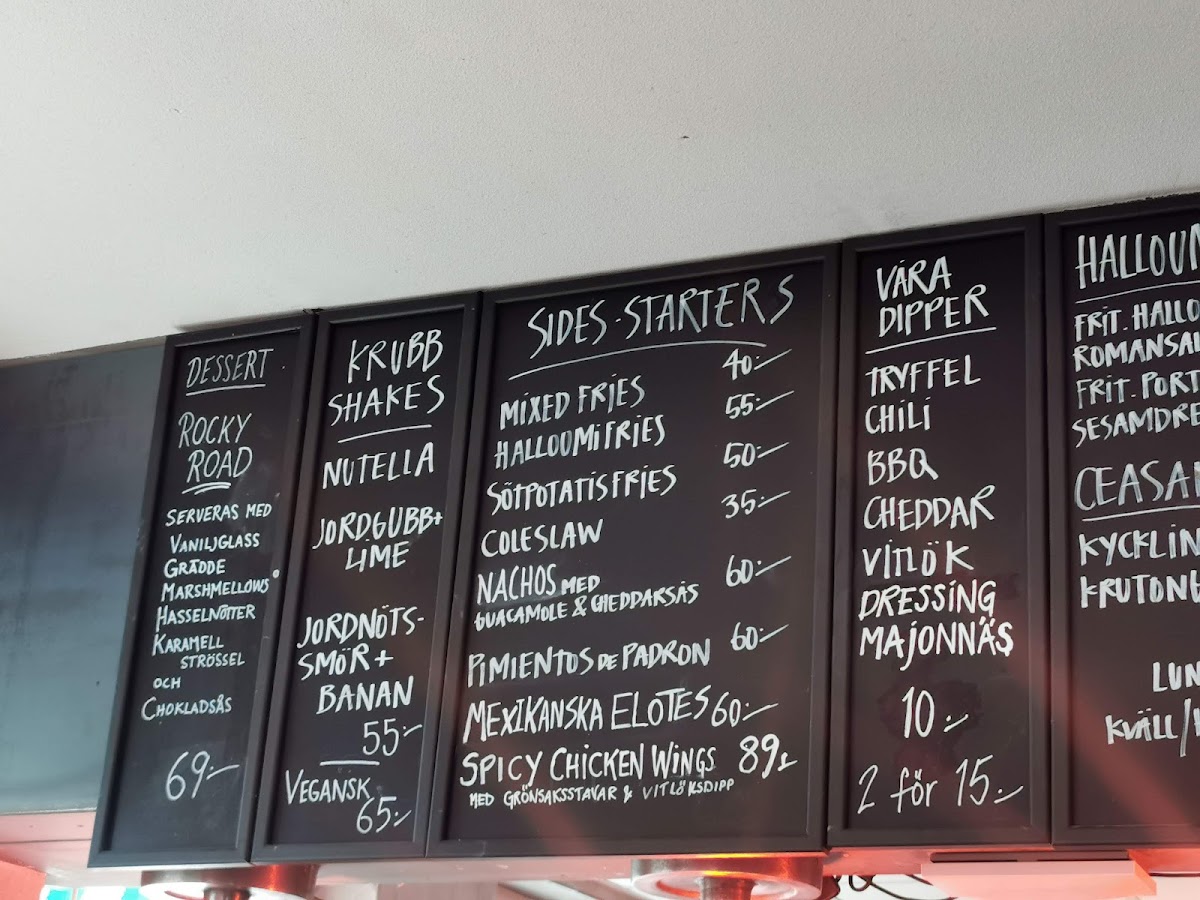 DESSERT
ROCKY
ROAD
SERVERAS MED
VANILJGLASS
GRÄDDE
MARSHMELLOWS
HASSELNÖTTER
KARAMELL
STRÖSSEL
OCH
CHOKLADSÅS
69:-
KRUBB
SHAKES
NUTELLA
JORDGUBB+
LIME
JORDNÖTS-
SMÖR+
BANAN
55:-
VEGANSK
65:-
SIDES-STARTERS
MIXED FRIES 40:-
HALLOOMIFRIES 55:-
SÖTPOTATISFRIES 50:-
COLESLAW 35:-
NACHOS MED
GUACAMOLE & CHEDDARSÅS 60:-
PIMIENTOS DE PADRON 60:-
MEXIKANSKA ELOTES 60:-
SPICY CHICKEN WINGS 89:-
MED GRÖNSAKSSTAVAR & VITLÖKSDIPP
VÅRA
DIPPER
TRYFFEL
CHILI
BBQ
CHEDDAR
VITLÖK
DRESSING
MAJONNÄS
10:-
2 för 15:-
HALLOUM
FRIT. HALLO
ROMANSAL
FRIT. PORT
SESAMDRE
CEASAR
KYCKLIN
KRUTONG
LUN
KVÄLL/